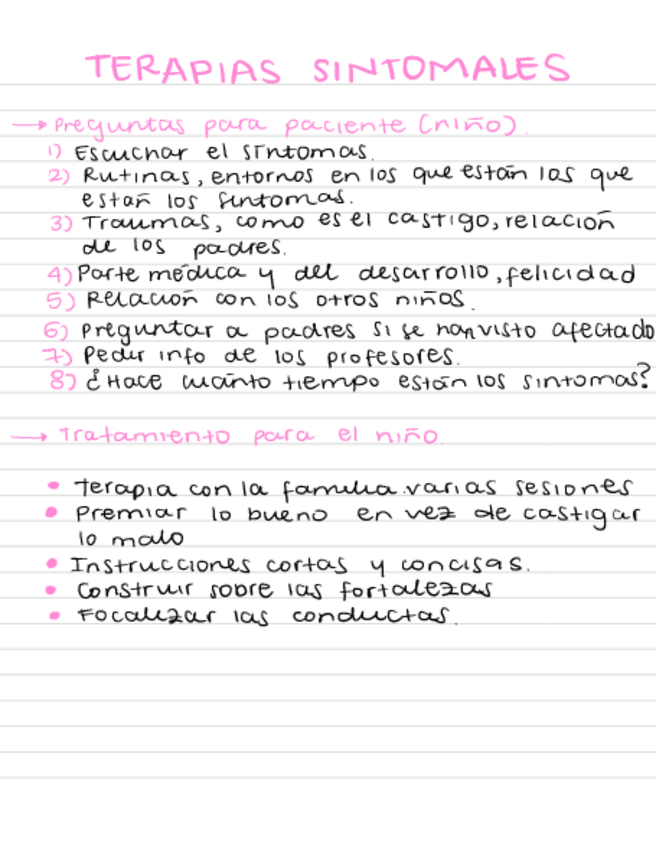 TERAPIAS SINTOMALES
→ Preguntas para paciente (niño).
1) Escuchar el síntomas.
2) Rutinas, entornos en los que están los que
están los síntomas.
3) Traumas, como es el castigo, relación
de los padres.
4) Parte médica y del desarrollo, felicidad
5) Relación con los otros niños.
6) Preguntar a padres si se han visto afectado
7) Pedir info de los profesores.
8) ¿Hace cuánto tiempo están los síntomas?
→ Tratamiento para el niño.
• Terapia con la familia. varias sesiones
• Premiar lo bueno en vez de castigar
lo malo
• Instrucciones cortas y concisas.
• Construir sobre las fortalezas
• Focalizar las conductas.